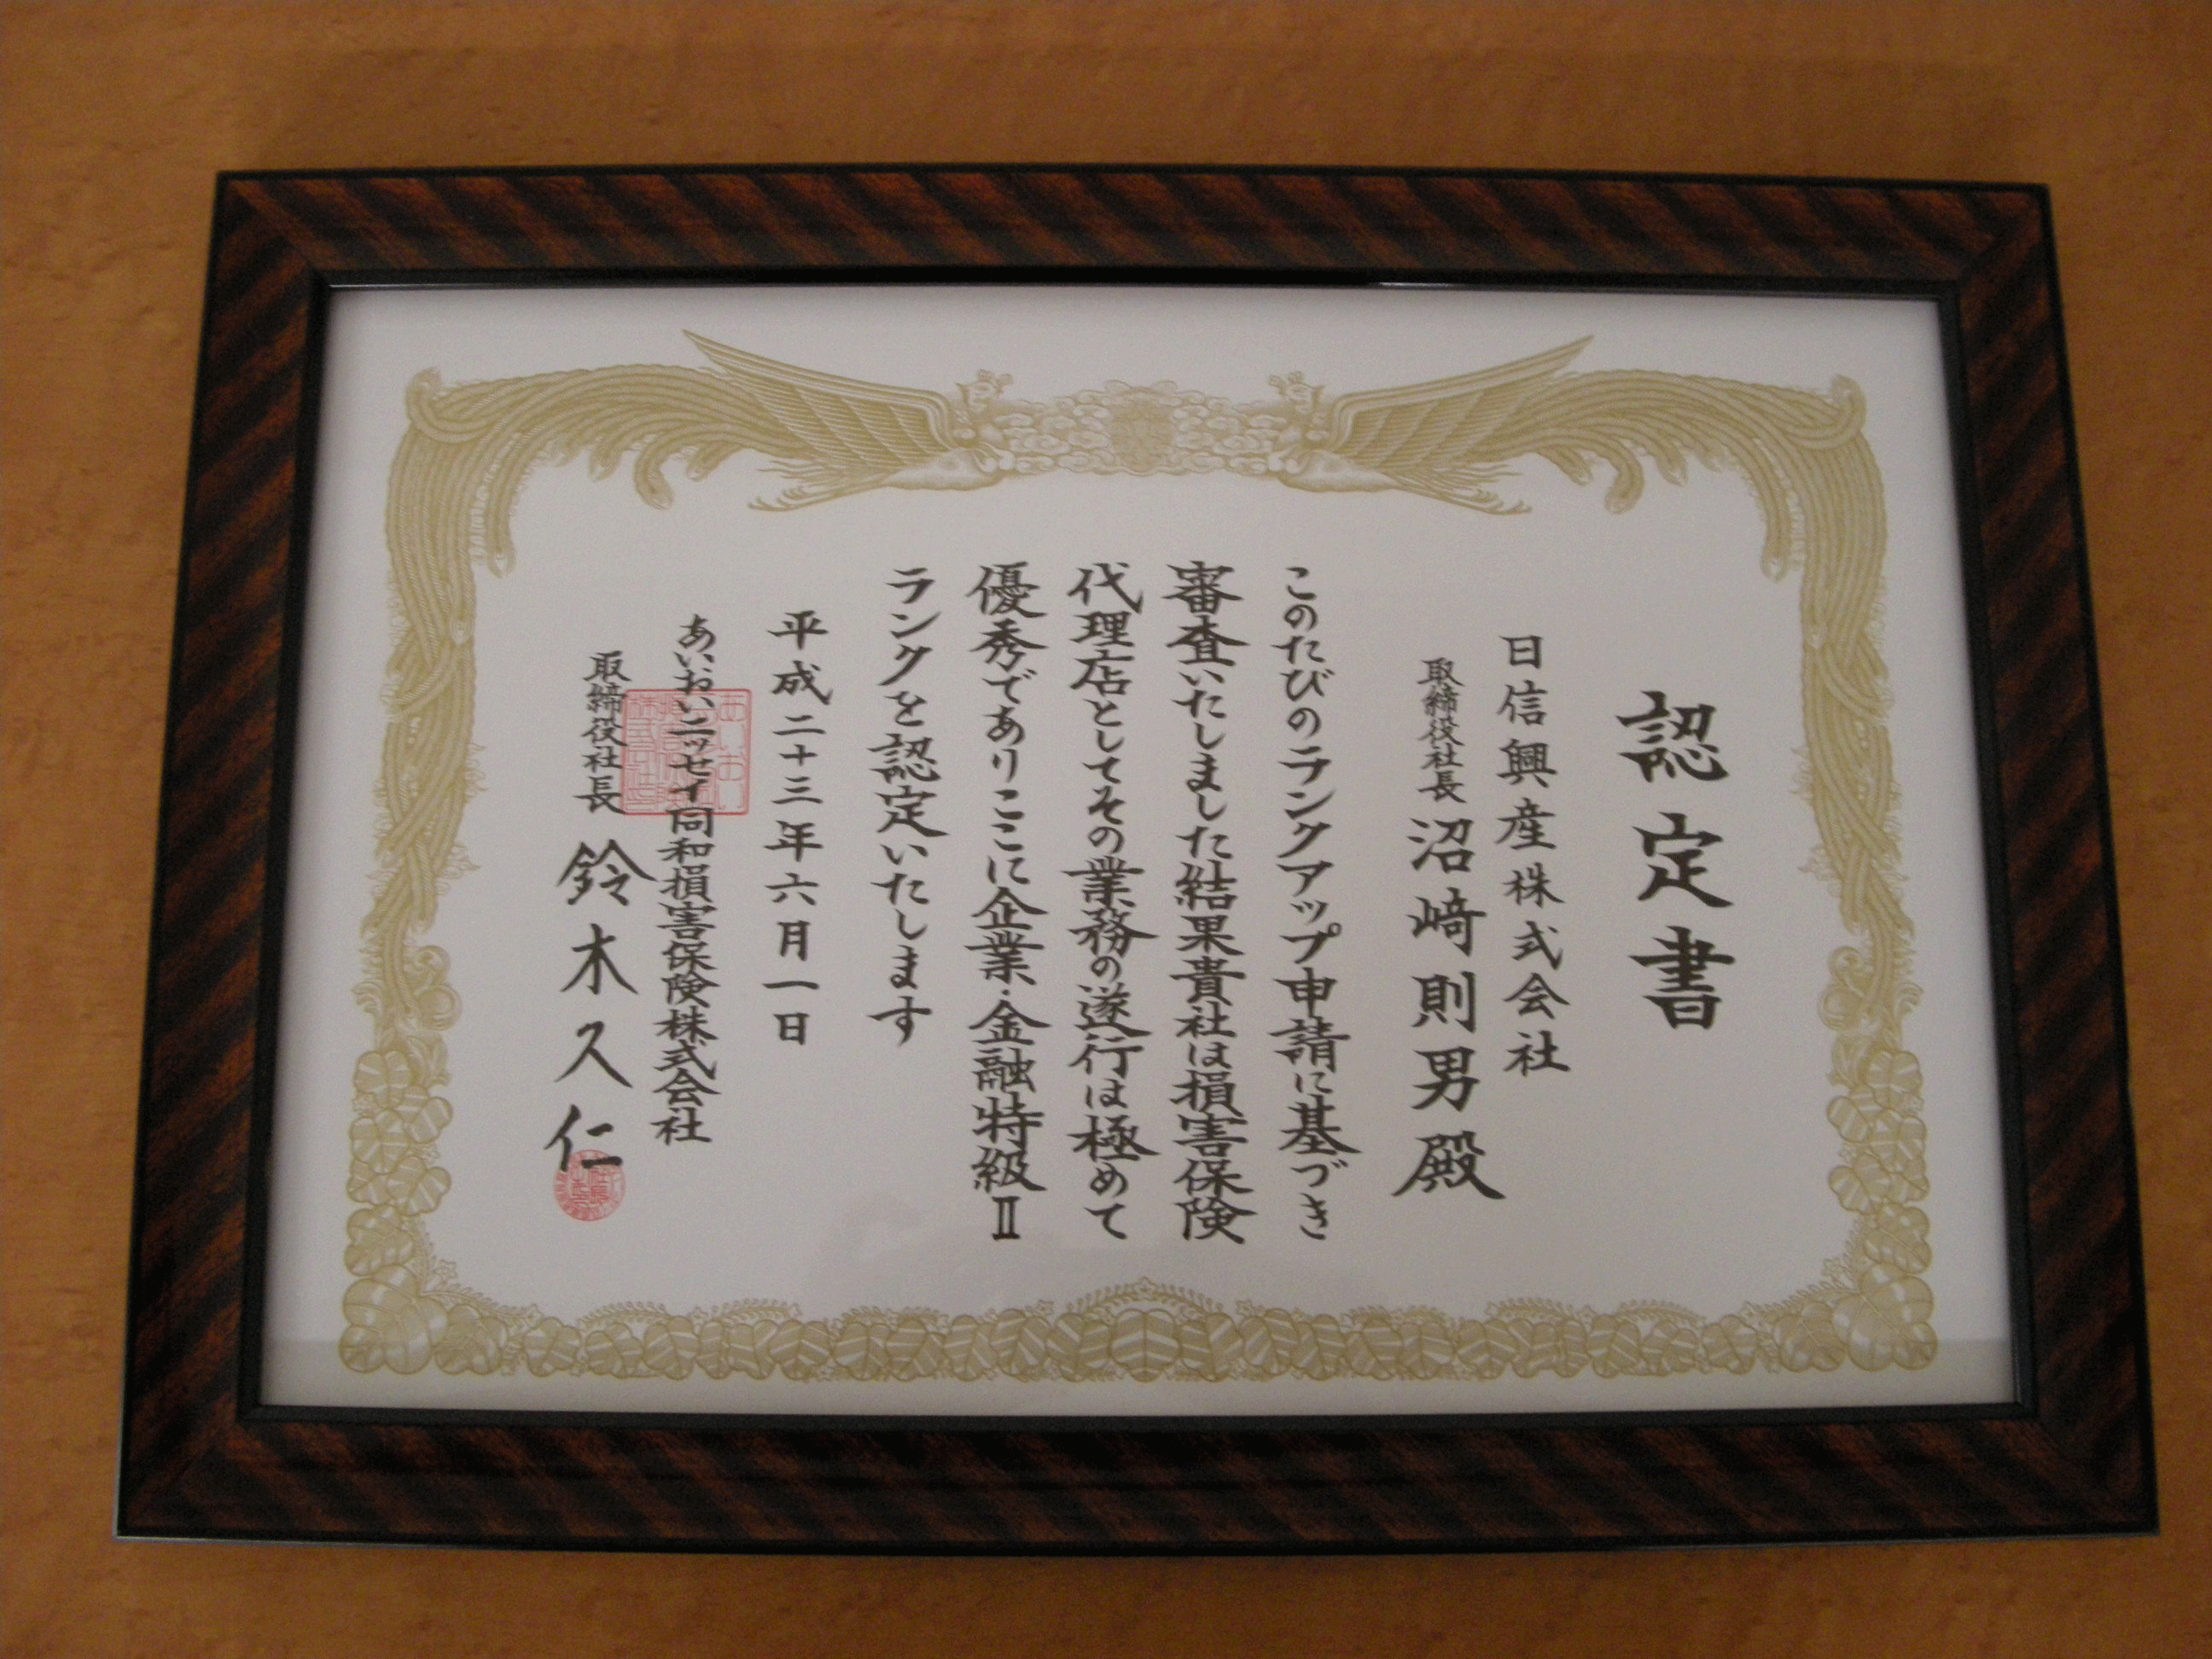 認定書
日信興産株式会社
取締役社長 沼﨑則男殿
このたびのランクアップ申請に基づき
審査いたしました結果貴社は損害保険
代理店としてその業務の遂行は極めて
優秀でありここに企業・金融特級Ⅱ
ランクを認定いたします
平成二十三年六月一日
あいおいニッセイ同和損害保険株式会社
取締役社長 鈴木久仁